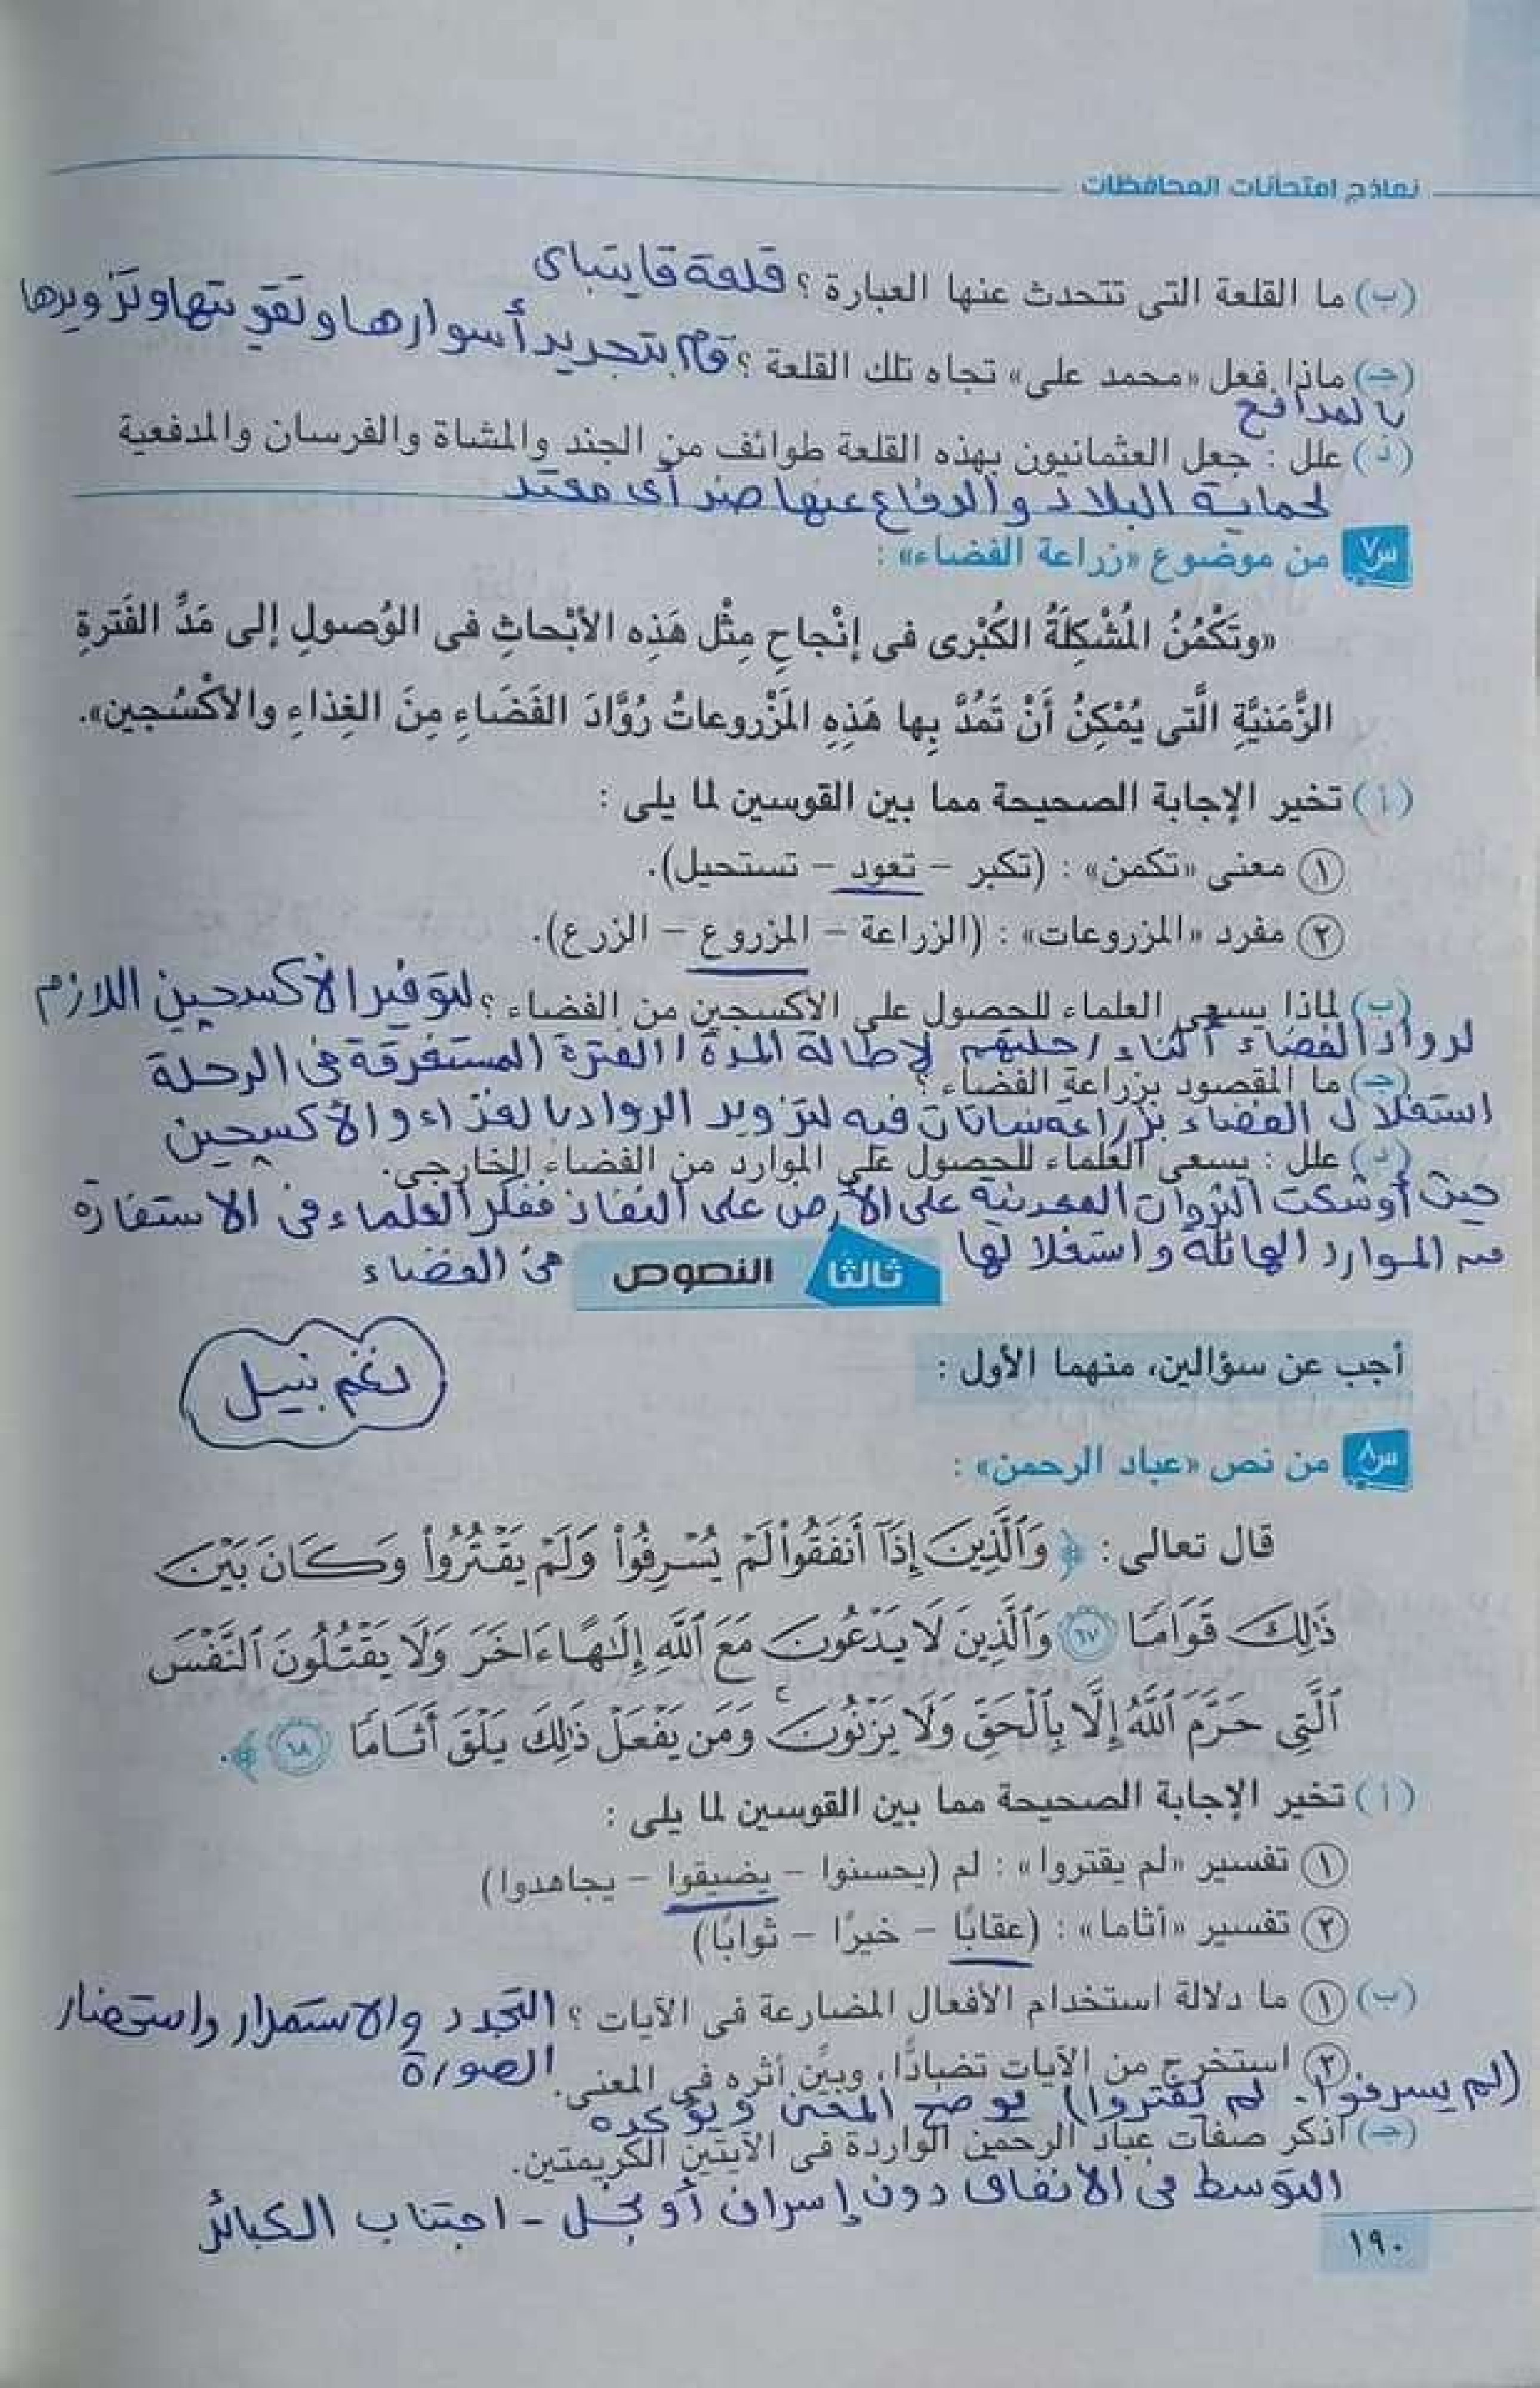 نماذج امتحانات المحافظات
(ب) ما القلعة التى تتحدث عنها العبارة ؟ قلعة قايتباى
(جـ) ماذا فعل «محمد على» تجاه تلك القلعة ؟ قام بتجديد أسوارها وتقويتها وتزويدها
بالمدافع
(د) علل : جعل العثمانيون بهذه القلعة طوائف من الجند والمشاة والفرسان والمدفعية
لحماية البلاد والدفاع عنها ضد أى معتد
س٧ من موضوع «زراعة الفضاء» :
«وتَكْمُنُ المُشْكِلَةُ الكُبْرى فى إنْجاحِ مِثْل هَذِه الأبْحاثِ فى الوُصولِ إلى مَدِّ الفَترةِ
الزَّمَنيَّةِ الَّتى يُمْكِنُ أَنْ تَمُدَّ بِها هَذِهِ المَزْروعاتُ رُوَّادَ الفَضَاءِ مِنَ الغِذاءِ والأكْسُجين».
(أ) تخير الإجابة الصحيحة مما بين القوسين لما يلى :
① معنى «تكمن» : (تكبر – تعود – تستحيل).
② مفرد «المزروعات» : (الزراعة – المزروع – الزرع).
(ب) لماذا يسعى العلماء للحصول على الأكسجين من الفضاء ؟ لتوفير الأكسجين اللازم
لرواد الفضاء أثناء رحلتهم لإطالة المدة / الفترة المستغرقة فى الرحلة
(جـ) ما المقصود بزراعة الفضاء ؟
استغلال الفضاء بزراعة نباتات فيه لتزويد الرواد بالغذاء والأكسجين
(د) علل : يسعى العلماء للحصول على الموارد من الفضاء الخارجى.
حيث أوشكت الثروات المعدنية على الأرض على النفاذ ففكر العلماء فى الاستفادة
من الموارد الهائلة واستغلالها فى الفضاء
ثالثا النصوص
نغم نبيل
أجب عن سؤالين، منهما الأول :
س٨ من نص «عباد الرحمن» :
قال تعالى : ﴿ وَٱلَّذِينَ إِذَآ أَنفَقُواْ لَمْ يُسْرِفُواْ وَلَمْ يَقْتُرُواْ وَكَانَ بَيْنَ
ذَٰلِكَ قَوَامًا ٦٧ وَٱلَّذِينَ لَا يَدْعُونَ مَعَ ٱللَّهِ إِلَٰهًا ءَاخَرَ وَلَا يَقْتُلُونَ ٱلنَّفْسَ
ٱلَّتِى حَرَّمَ ٱللَّهُ إِلَّا بِٱلْحَقِّ وَلَا يَزْنُونَ ۚ وَمَن يَفْعَلْ ذَٰلِكَ يَلْقَ أَثَامًا ٦٨ ﴾.
(أ) تخير الإجابة الصحيحة مما بين القوسين لما يلى :
① تفسير «لم يقتروا» : لم (يحسنوا – يضيقوا – يجاهدوا)
② تفسير «أثاما» : (عقابًا – خيرًا – ثوابًا)
(ب) ① ما دلالة استخدام الأفعال المضارعة فى الآيات ؟ التجدد والاستمرار واستحضار
الصورة
② استخرج من الآيات تضادًا، وبيِّن أثره فى المعنى.
(لم يسرفوا - لم يقتروا) يوضح المعنى ويؤكده
(جـ) اذكر صفات عباد الرحمن الواردة فى الآيتين الكريمتين.
التوسط فى الانفاق دون إسراف أو بخل - اجتناب الكبائر
١٩٠